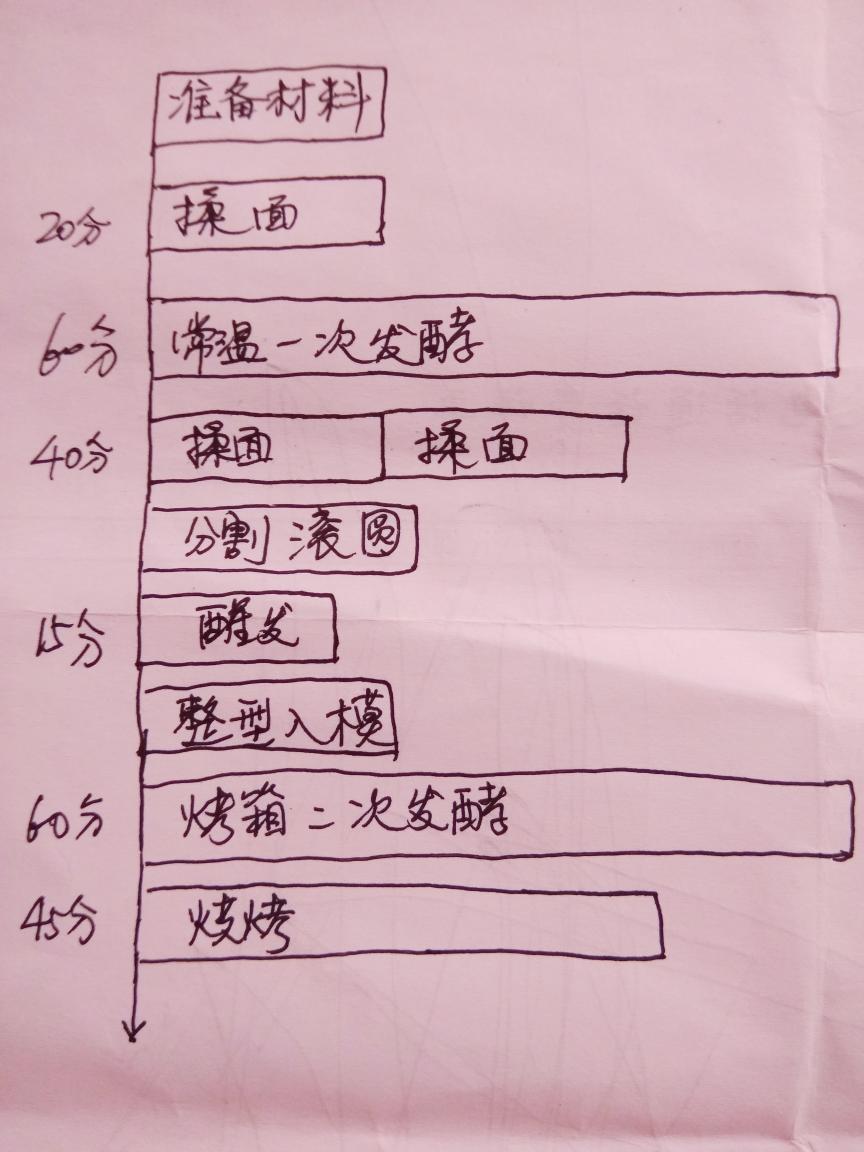 准备材料
20分 揉面
60分 常温一次发酵
40分 揉面 揉面
分割 滚圆
15分 醒发
整型入模
60分 烤箱二次发酵
45分 烧烤